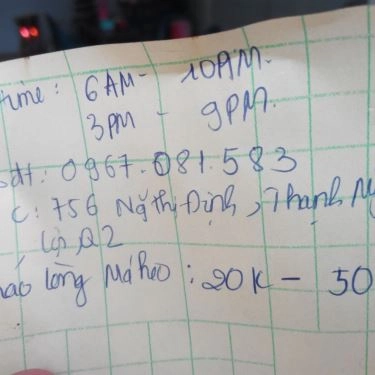 time: 6AM - 10AM.
3PM - 9PM.
sdt: 0967.081.583
C: 756 Ng Thị Định, Thạnh
Q2
cháo lòng Má Heo: 20K - 50